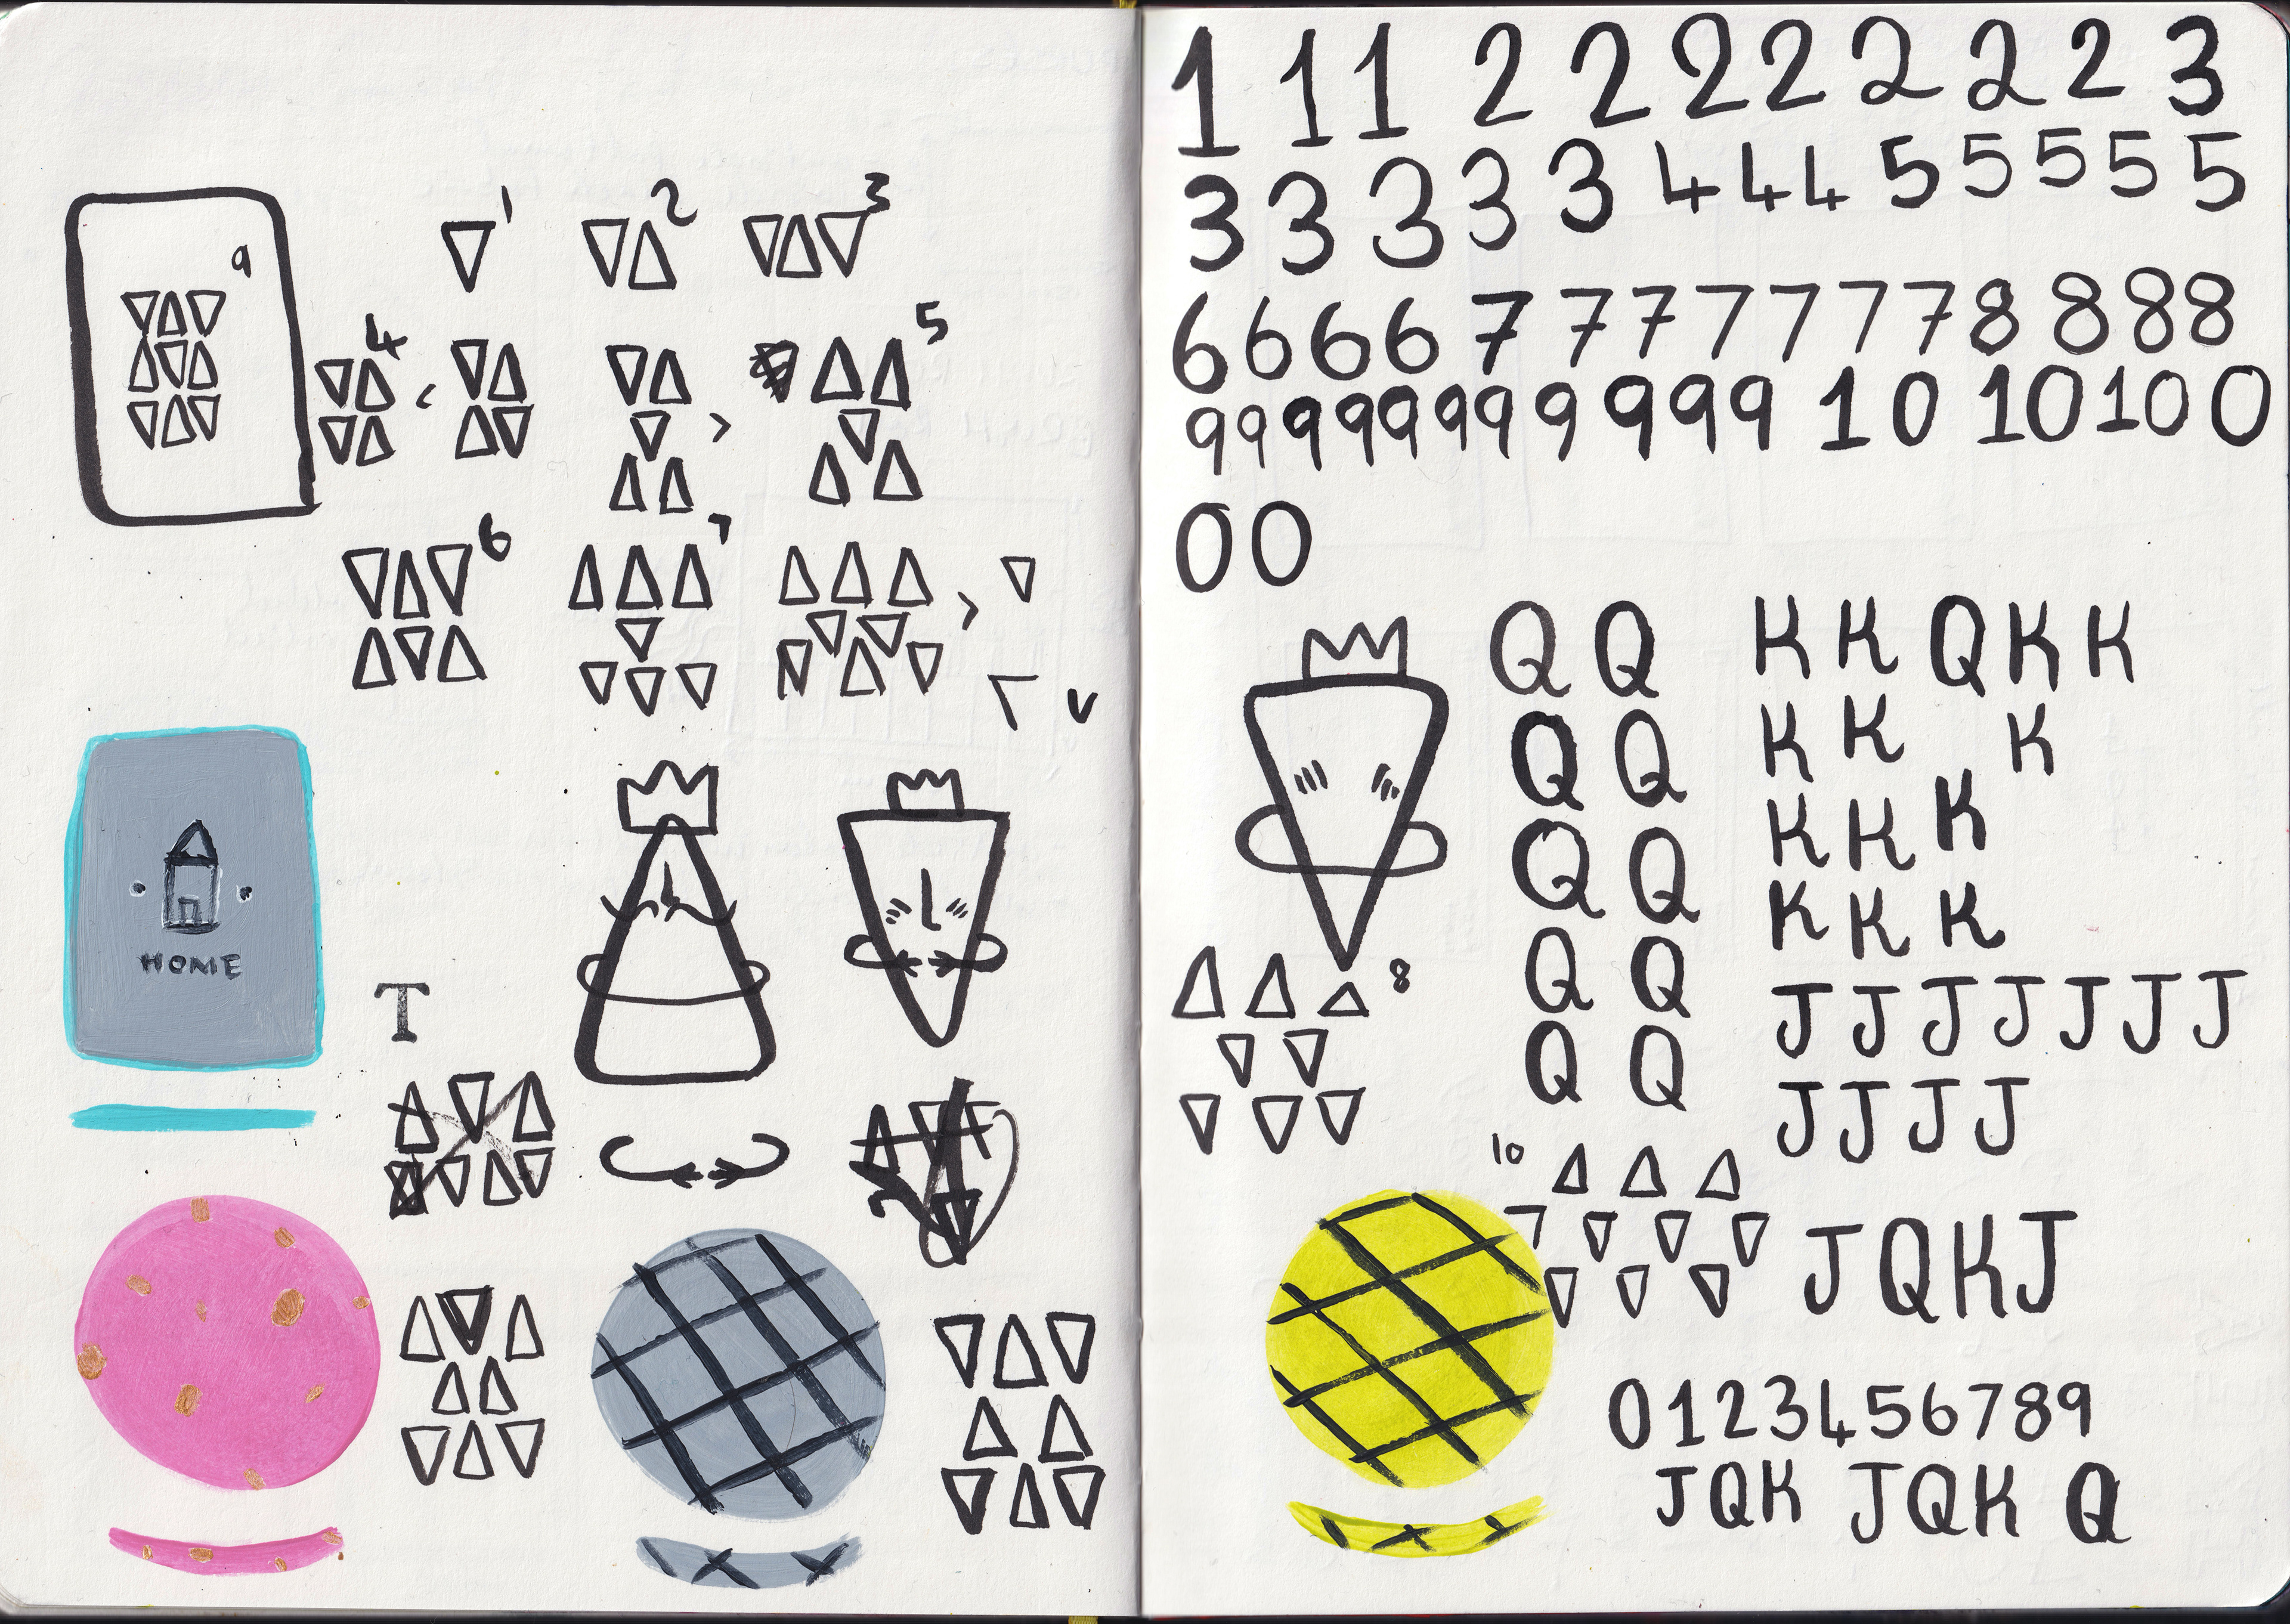 9
1
2
3
4
5
6
7
HOME
T
1 1 1 2 2 2 2 2 2 2 3
3 3 3 3 3 4 4 4 5 5 5 5 5
6 6 6 6 7 7 7 7 7 7 7 8 8 8 8
9 9 9 9 9 9 9 9 9 9 9 10 10 10 0
0 0
Q Q
Q Q
Q Q
Q Q
Q Q
K K Q K K
K K K
K K K
K K K
J J J J J J J
J J J J
8
10
J Q K J
0 1 2 3 4 5 6 7 8 9
J Q K J Q K Q